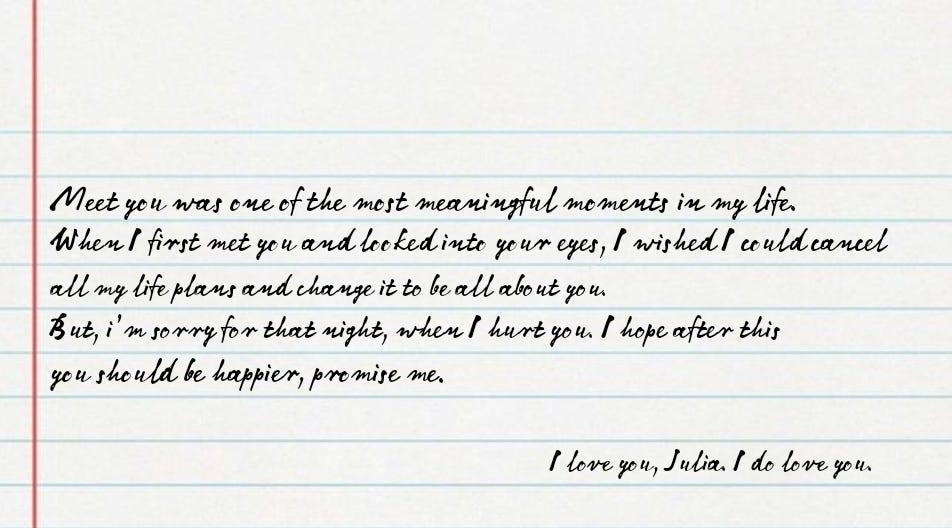 Meet you was one of the most meaningful moments in my life.
When I first met you and looked into your eyes, I wished I could cancel
all my life plans and change it to be all about you.
But, i'm sorry for that night, when I hurt you. I hope after this
you should be happier, promise me.
I love you, Julia. I do love you.